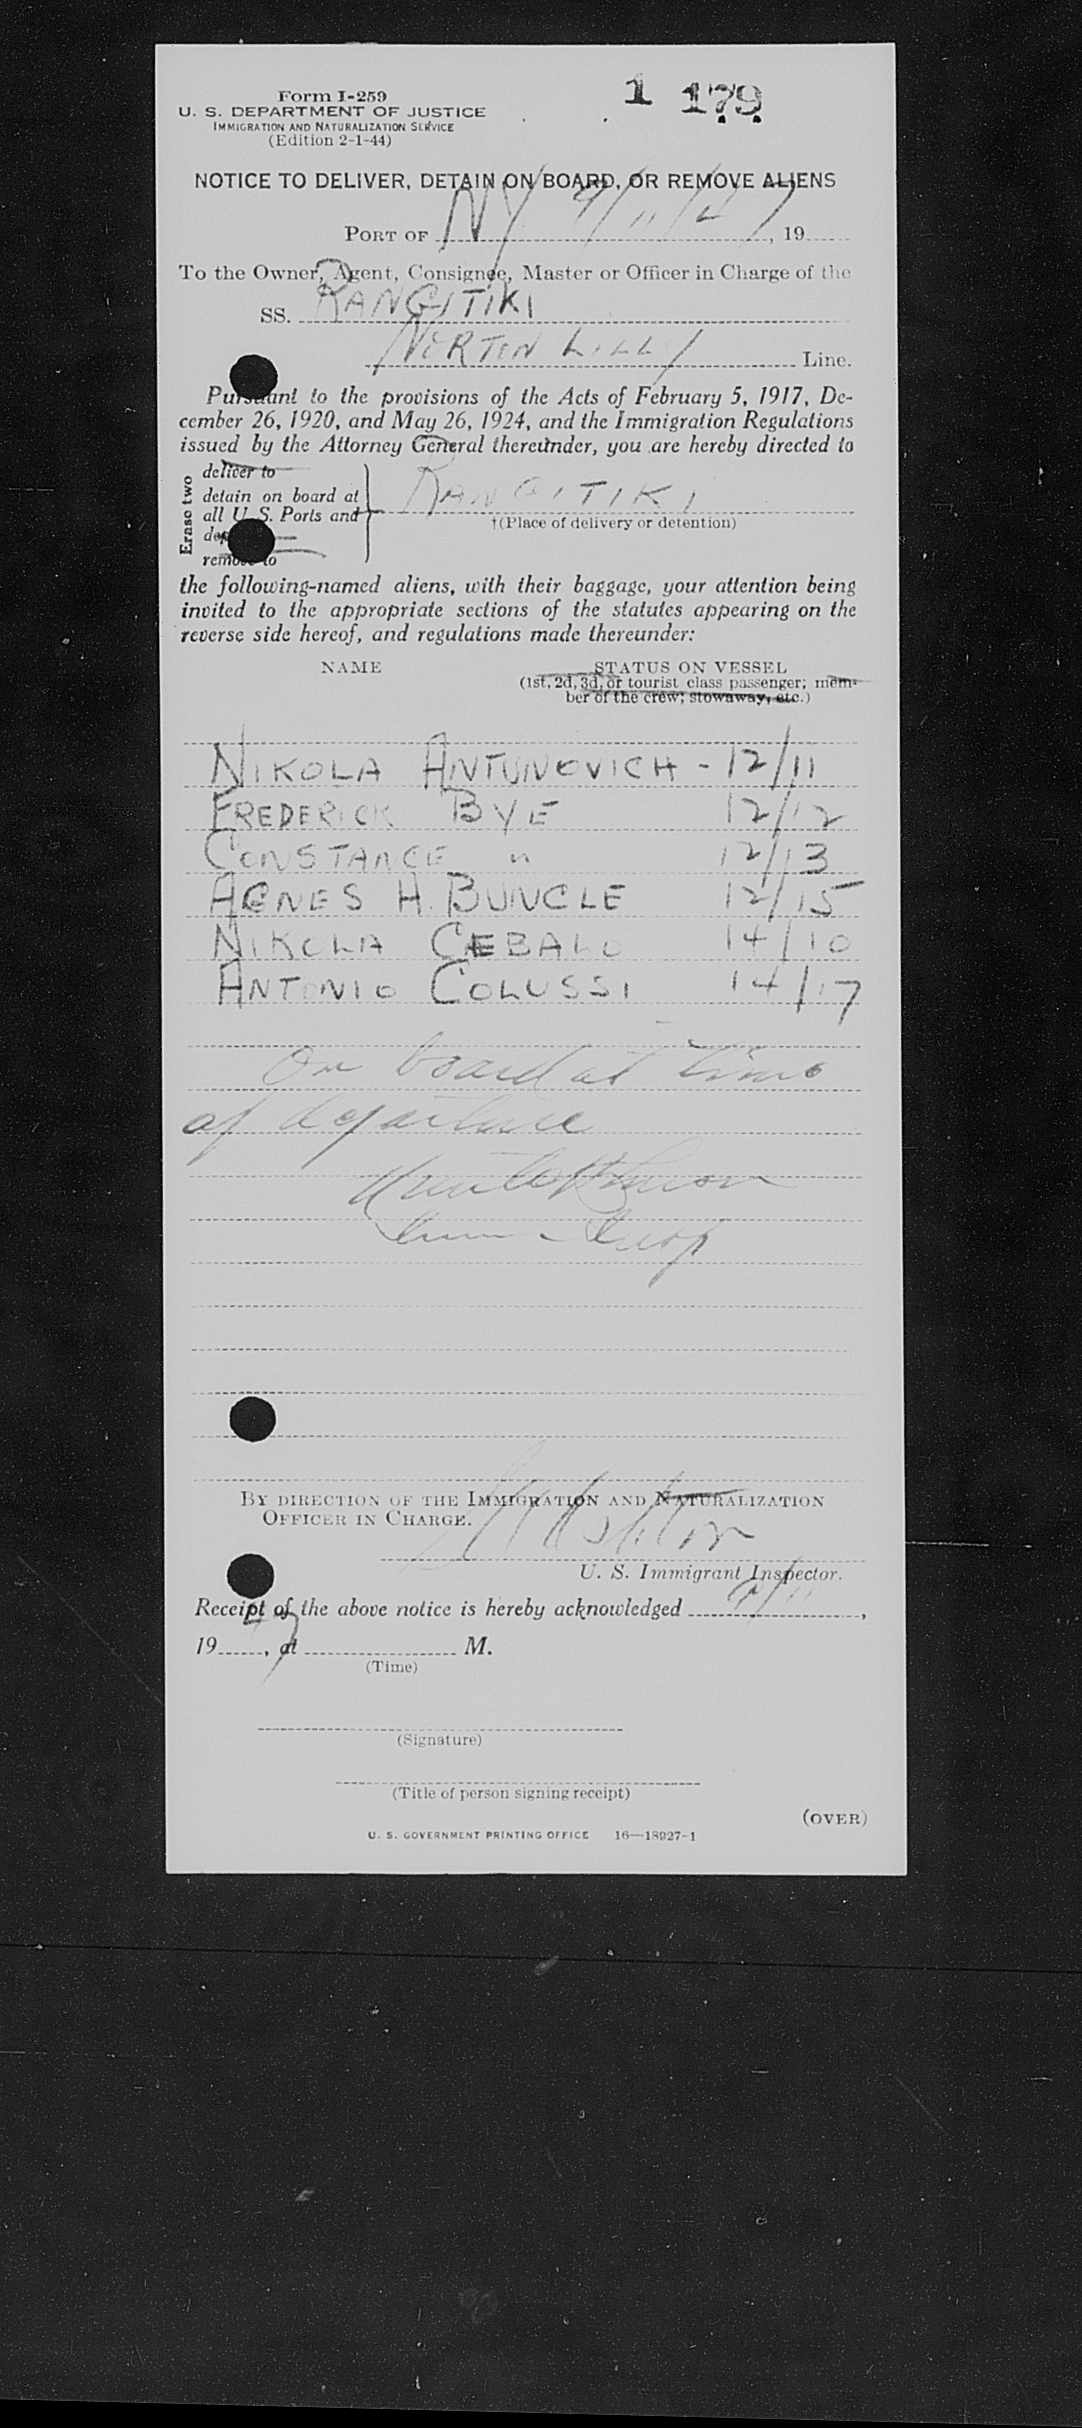 1 179
Form I-259
U. S. DEPARTMENT OF JUSTICE
IMMIGRATION AND NATURALIZATION SERVICE
(Edition 2-1-44)
NOTICE TO DELIVER, DETAIN ON BOARD, OR REMOVE ALIENS
PORT OF NY 9/11/47, 19
To the Owner, Agent, Consignee, Master or Officer in Charge of the
SS. RANGITIKI
NORTON LILLY Line.
Pursuant to the provisions of the Acts of February 5, 1917, De-
cember 26, 1920, and May 26, 1924, and the Immigration Regulations
issued by the Attorney General thereunder, you are hereby directed to
Erase two
deliver to
detain on board at
all U. S. Ports and
remove to
RANGITIKI
†(Place of delivery or detention)
the following-named aliens, with their baggage, your attention being
invited to the appropriate sections of the statutes appearing on the
reverse side hereof, and regulations made thereunder:
NAME STATUS ON VESSEL
(1st, 2d, 3d, or tourist class passenger; mem-
ber of the crew; stowaway, etc.)
NIKOLA ANTUNOVICH - 12/11
FREDERICK BYE 12/12
CONSTANCE " 12/13
AGNES H. BUNCLE 12/15
NIKOLA CEBALO 14/10
ANTONIO COLUSSI 14/17
On board at time
of departure
BY DIRECTION OF THE IMMIGRATION AND NATURALIZATION
OFFICER IN CHARGE.
U. S. Immigrant Inspector.
Receipt of the above notice is hereby acknowledged 9/11,
19 47, at M.
(Time)
(Signature)
(Title of person signing receipt)
(OVER)
U. S. GOVERNMENT PRINTING OFFICE 16—18927-1